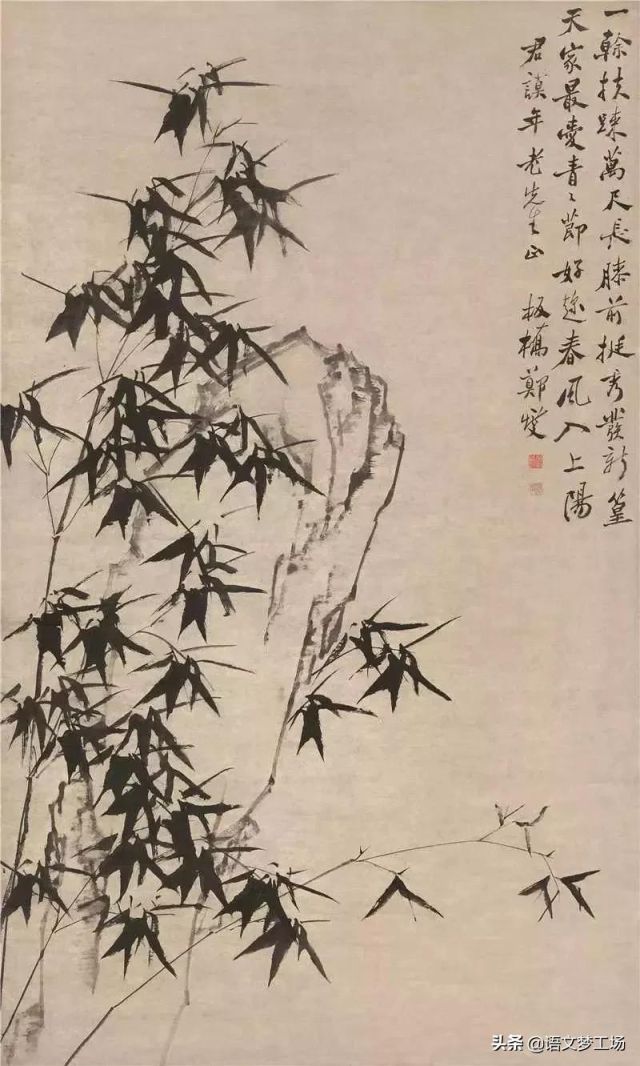 一榦扶踈萬尺長膝前挺秀發新篁
天家最愛青〻節好趂春風入上陽
君謨年老先生正 板橋鄭燮
头条 @语文梦工场